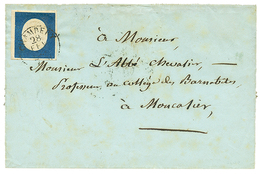 à Monsieur,
Monsieur L'Abbé Chevalier, —
Professeur au collège des Barnabites
à Moncalier,
28